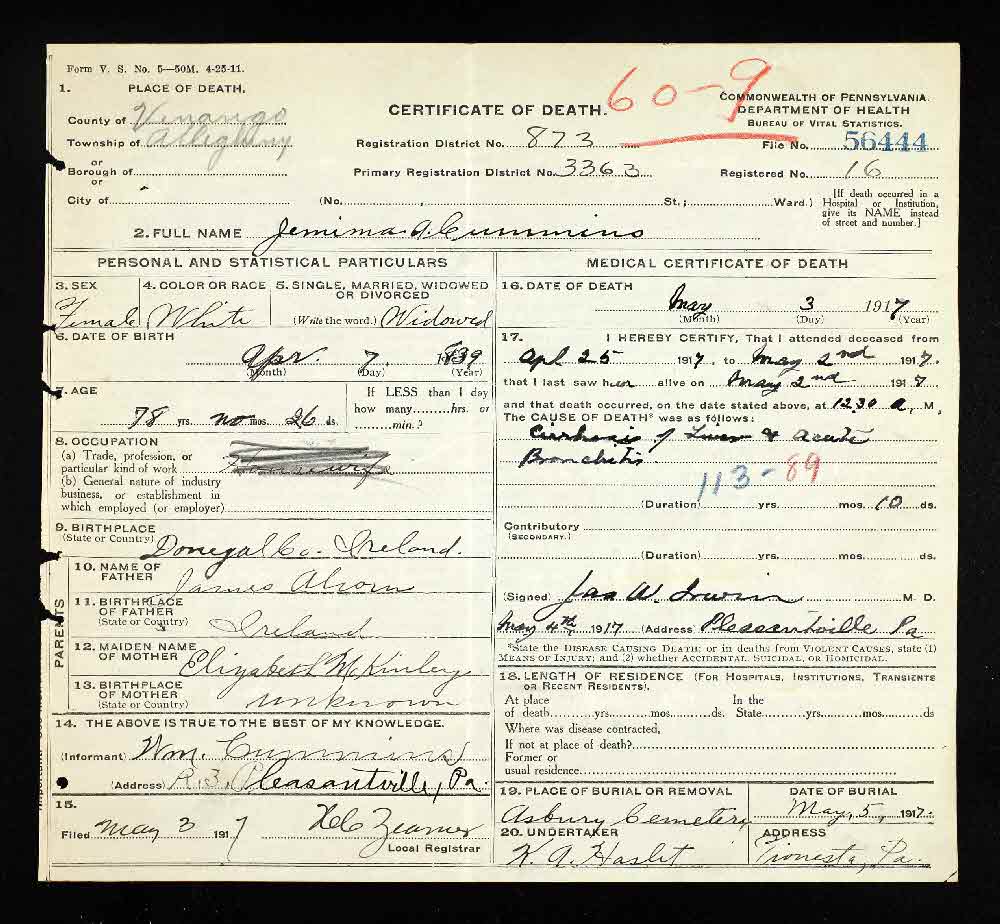 Form V. S. No. 5—50M. 4-25-11.
1. PLACE OF DEATH.
County of Venango
Township of Allegheny
or
Borough of
or
City of
CERTIFICATE OF DEATH.
60-9
COMMONWEALTH OF PENNSYLVANIA.
DEPARTMENT OF HEALTH
BUREAU OF VITAL STATISTICS.
Registration District No. 873
File No. 56444
Primary Registration District No. 3363
Registered No. 16
(No. St.; Ward.)
[If death occurred in a
Hospital or Institution,
give its NAME instead
of street and number.]
2. FULL NAME Jemima A. Cummins
PERSONAL AND STATISTICAL PARTICULARS
3. SEX
Female
4. COLOR OR RACE
White
5. SINGLE, MARRIED, WIDOWED
OR DIVORCED
(Write the word.) Widowed
6. DATE OF BIRTH
Apr. 7 1839
(Month) (Day) (Year)
7. AGE
78 yrs. no mos. 26 ds.
If LESS than 1 day
how many........hrs. or
........min.?
8. OCCUPATION
(a) Trade, profession, or
particular kind of work
(b) General nature of industry
business, or establishment in
which employed (or employer)
9. BIRTHPLACE
(State or Country)
Donegal Co. Ireland.
PARENTS
10. NAME OF
FATHER
James
11. BIRTHPLACE
OF FATHER
(State or Country)
Ireland
12. MAIDEN NAME
OF MOTHER
Elizabeth McKinley
13. BIRTHPLACE
OF MOTHER
(State or Country)
unknown
14. THE ABOVE IS TRUE TO THE BEST OF MY KNOWLEDGE.
(Informant) Wm. Cummins
(Address) R. 3, Pleasantville, Pa.
15.
Filed May 3 1917
Local Registrar
MEDICAL CERTIFICATE OF DEATH
16. DATE OF DEATH
May 3 1917
(Month) (Day) (Year)
17. I HEREBY CERTIFY, That I attended deceased from
Apl 25 1917. to May 2nd 1917.
that I last saw her alive on May 2nd 1917
and that death occurred, on the date stated above, at 12 30 a, M,
The CAUSE OF DEATH* was as follows:
Cirrhosis of Liver & Acute
Bronchitis
113-89
(Duration) yrs. mos. 10 ds.
Contributory
(SECONDARY.)
(Duration) yrs. mos. ds.
(Signed) Jas W. Irwin M. D.
May 4th, 1917 (Address) Pleasantville Pa
*State the DISEASE CAUSING DEATH; or in deaths from VIOLENT CAUSES, state (1)
MEANS OF INJURY; and (2) whether ACCIDENTAL, SUICIDAL, OR HOMICIDAL.
18. LENGTH OF RESIDENCE (FOR HOSPITALS, INSTITUTIONS, TRANSIENTS
OR RECENT RESIDENTS).
At place In the
of death........yrs........mos........ds. State........yrs........mos........ds
Where was disease contracted,
If not at place of death?
Former or
usual residence
19. PLACE OF BURIAL OR REMOVAL
Asbury Cemetery
DATE OF BURIAL
May, 5, 1917.
20. UNDERTAKER
K. A. Haslet
ADDRESS
Tionesta, Pa.